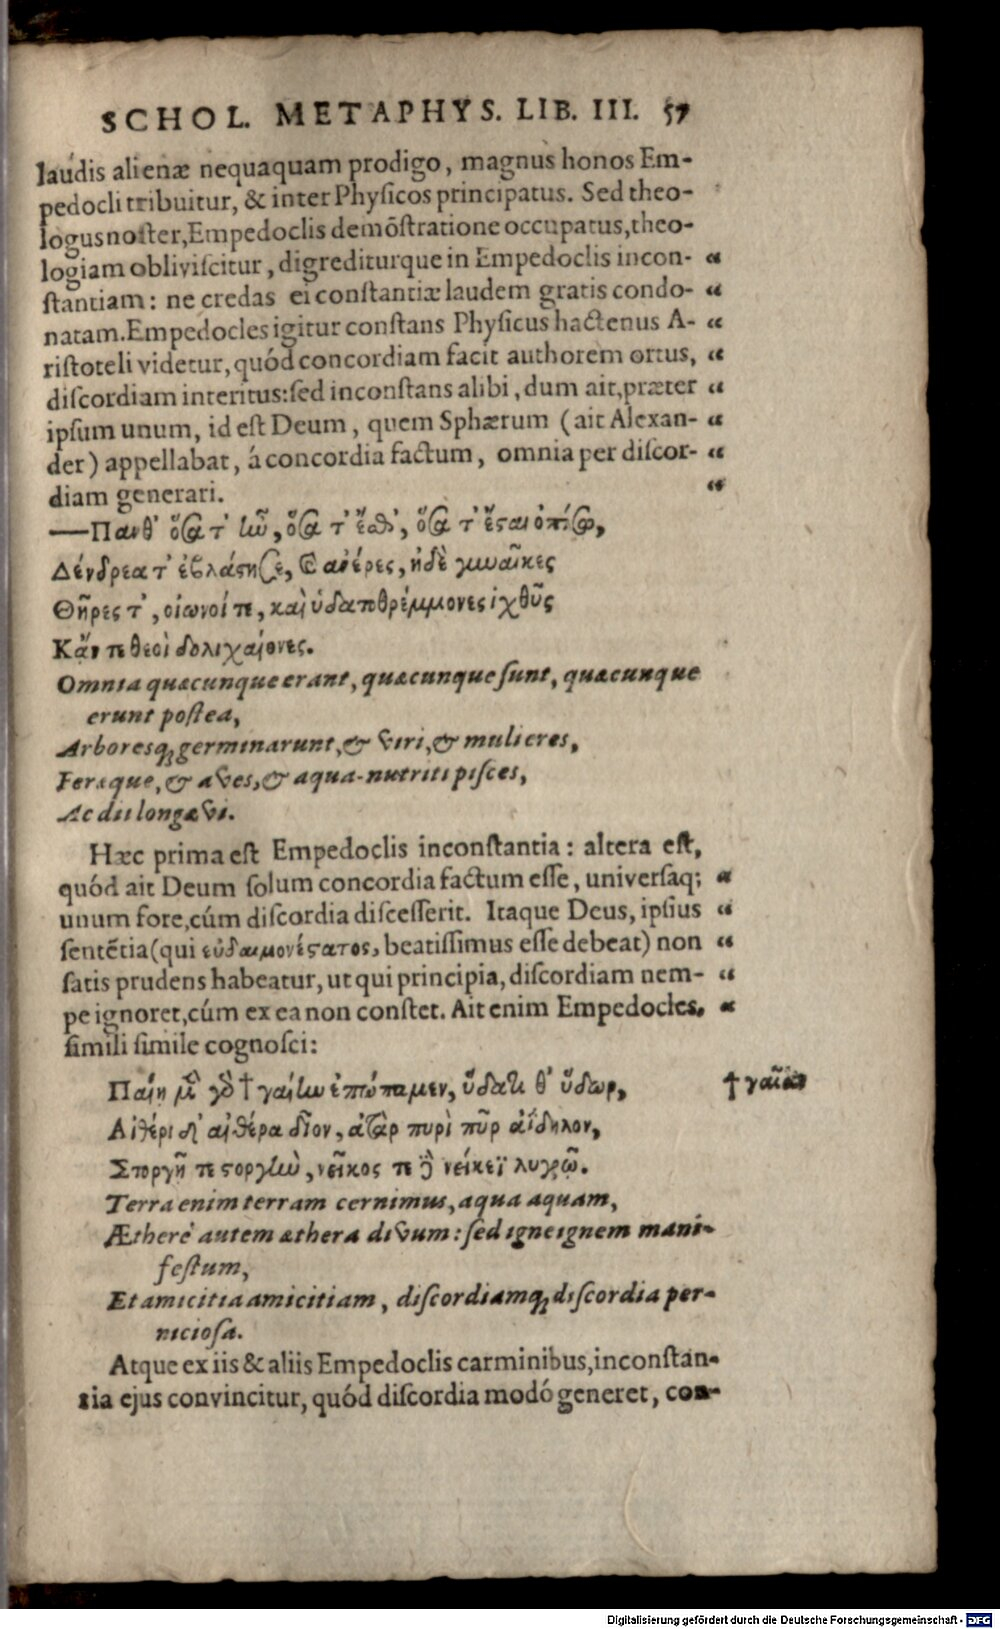 SCHOL. METAPHYS. LIB. III. 57
laudis alienæ nequaquam prodigo, magnus honos Em-
pedocli tribuitur, & inter Physicos principatus. Sed theo-
logus noster, Empedoclis demõstratione occupatus, theo-
logiam obliviscitur, digrediturque in Empedoclis incon- “
stantiam: ne credas ei constantiæ laudem gratis condo- “
natam. Empedocles igitur constans Physicus hactenus A- “
ristoteli videtur, quód concordiam facit authorem ortus, “
discordiam interitus: sed inconstans alibi, dum ait, præter “
ipsum unum, id est Deum, quem Sphærum (ait Alexan- “
der) appellabat, á concordia factum, omnia per discor- “
diam generari. “
—Πανθ’ ὅσα τ’ ἰῶ, ὅσα τ’ ἔσθ’, ὅσα τ’ ἔσται ὀπίσσω,
Δένδρεα τ’ ἐβλάστησε, καὶ ἀνέρες, ἠδὲ γυναῖκες
Θῆρες τ’, οἰωνοί τε, καὶ ὑδατοθρέμμονες ἰχθῦς
Κᾄν τε θεοὶ δολιχαίονες.
Omnia quæcunque erant, quæcunque sunt, quæcunque
erunt postea,
Arboresq; germinarunt, & viri, & mulieres,
Feræque, & aves, & aqua-nutriti pisces,
Ac dii longævi.
Hæc prima est Empedoclis inconstantia: altera est,
quód ait Deum solum concordia factum esse, universaq; “
unum fore, cúm discordia discesserit. Itaque Deus, ipsius “
sentẽtia (qui εὐδαιμονέστατος, beatissimus esse debeat) non “
satis prudens habeatur, ut qui principia, discordiam nem- “
pe ignoret, cúm ex ea non constet. Ait enim Empedocles, “
simili simile cognosci:
Γαίῃ μὲν γὸ † γαίην ἐπώπαμεν, ὕδατι θ’ ὕδωρ, † γαῖαν
Αἰθέρι δ’ αἰθέρα δῖον, ἀτὰρ πυρὶ πῦρ ἀΐδηλον,
Στοργῇ τε στοργὴν, νεῖκος τε νείκεϊ λυγρῷ.
Terra enim terram cernimus, aqua aquam,
Æthere autem æthera divum: sed igne ignem mani-
festum,
Et amicitia amicitiam, discordiamq; discordia per-
niciosa.
Atque ex iis & aliis Empedoclis carminibus, inconstan-
tia ejus convincitur, quód discordia modó generet, con-
Digitalisierung gefördert durch die Deutsche Forschungsgemeinschaft - DFG